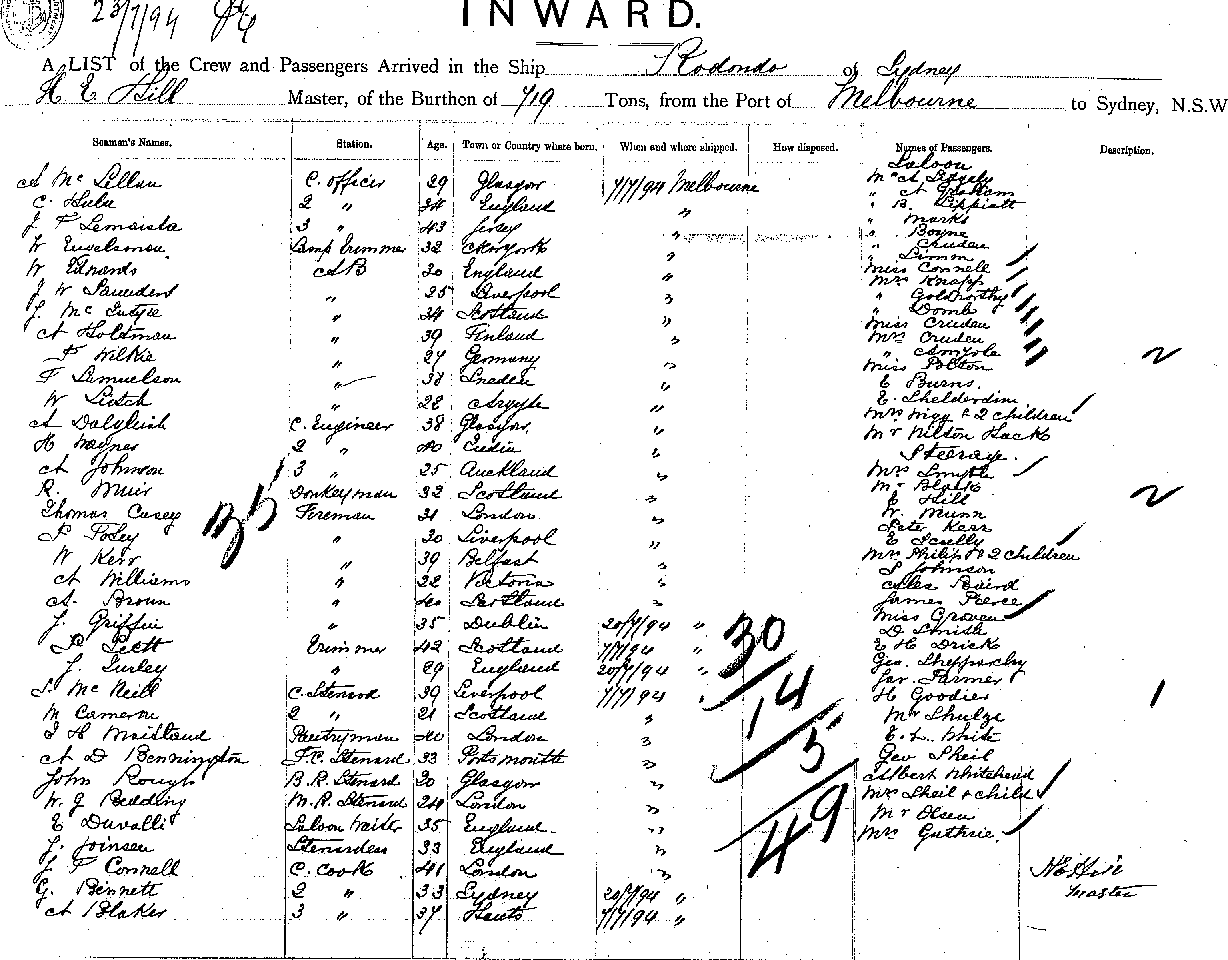 23/7/94
INWARD.
A LIST of the Crew and Passengers Arrived in the Ship Rodondo of Sydney
H E Hill Master, of the Burthen of 719 Tons, from the Port of Melbourne to Sydney, N.S.W
Seaman's Names. Station. Age. Town or Country where born. When and where shipped. How disposed. Names of Passengers. Description.
Saloon
A Mc Lellan C. Officer 29 Glasgow 7/7/94 Melbourne
C. 2 " 34 England "
J F Lemaistre 3 " 43 Jersey "
W Lamp Trimmer 32 "
W Edwards A B 30 England "
J W Saunders " 25 Liverpool "
J. Mc Intyre " 34 Scotland "
A Holtman " 39 Finland "
F Wilkie " 27 Germany "
F Samuelson " 38 Sweden "
W Leitch " 22 Argyle "
A Dalgleish C. Engineer 38 Glasgow "
H Haynes 2 " 40 India "
A Johnson 3 " 25 Auckland "
R. Muir Donkeyman 32 Scotland "
Thomas Casey Fireman 31 London "
P Foley " 30 Liverpool "
W Kerr " 39 Belfast "
A Williams " 22 Victoria "
A. Brown " 40 Scotland "
J. Griffin " 35 Dublin 20/7/94 "
Scott Trimmer 42 Scotland 7/7/94 "
J. Gurley " 29 England 20/7/94 "
J. Mc Neill C. Steward 39 Liverpool 7/7/94 "
M Cameron 2 " 21 Scotland "
J H Maitland Pantryman 40 London "
A D Bennington F.C. Steward 33 Portsmouth "
John Rough B.R. Steward 30 Glasgow "
W. J Redding M.R. Steward 24 London "
E Duvalli Saloon Waiter 35 England "
J. Joinsen Stewardess 33 England "
J F Connell C. Cook 41 London "
G. Bennett 2 " 33 Sydney 20/7/94 "
A Blaker 3 " 37 Hants 7/7/94 "
35
30
14
5
49
Mr A
" A Graham
" B. Lippiatt
" Marks
" Boyne
" Cruden
"
Miss Connell
Mrs Knapp
" Goldworthy
" Domb
Miss Cruden
Mrs Cruden
"
Miss Polson
E Burns.
E.
Mrs Wigg & 2 children
Mr Wilton Hack
Steerage.
Mrs Smyth
Mr Black
E Hill
W. Munn
Peter Kerr
E Scully
Mrs Philip & 2 children
J Johnson
Baird
James Pierce
Miss Groven
D. Smith
E H Drick
Geo. Shepparchy
Jas. Farmer
H Goodier
Mr Shulze
E. L. White
Geo Sheil
Albert Whitehead
Mrs Sheil & child
Mr Olsen
Mrs Guthrie
2
2
1
H E Hill
Master